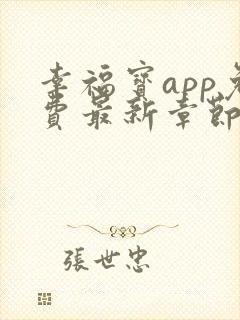 幸福寶app免
費最新章節
張世忠